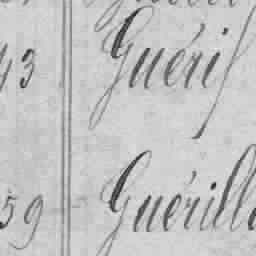 43 Guérif
59 Guérilla